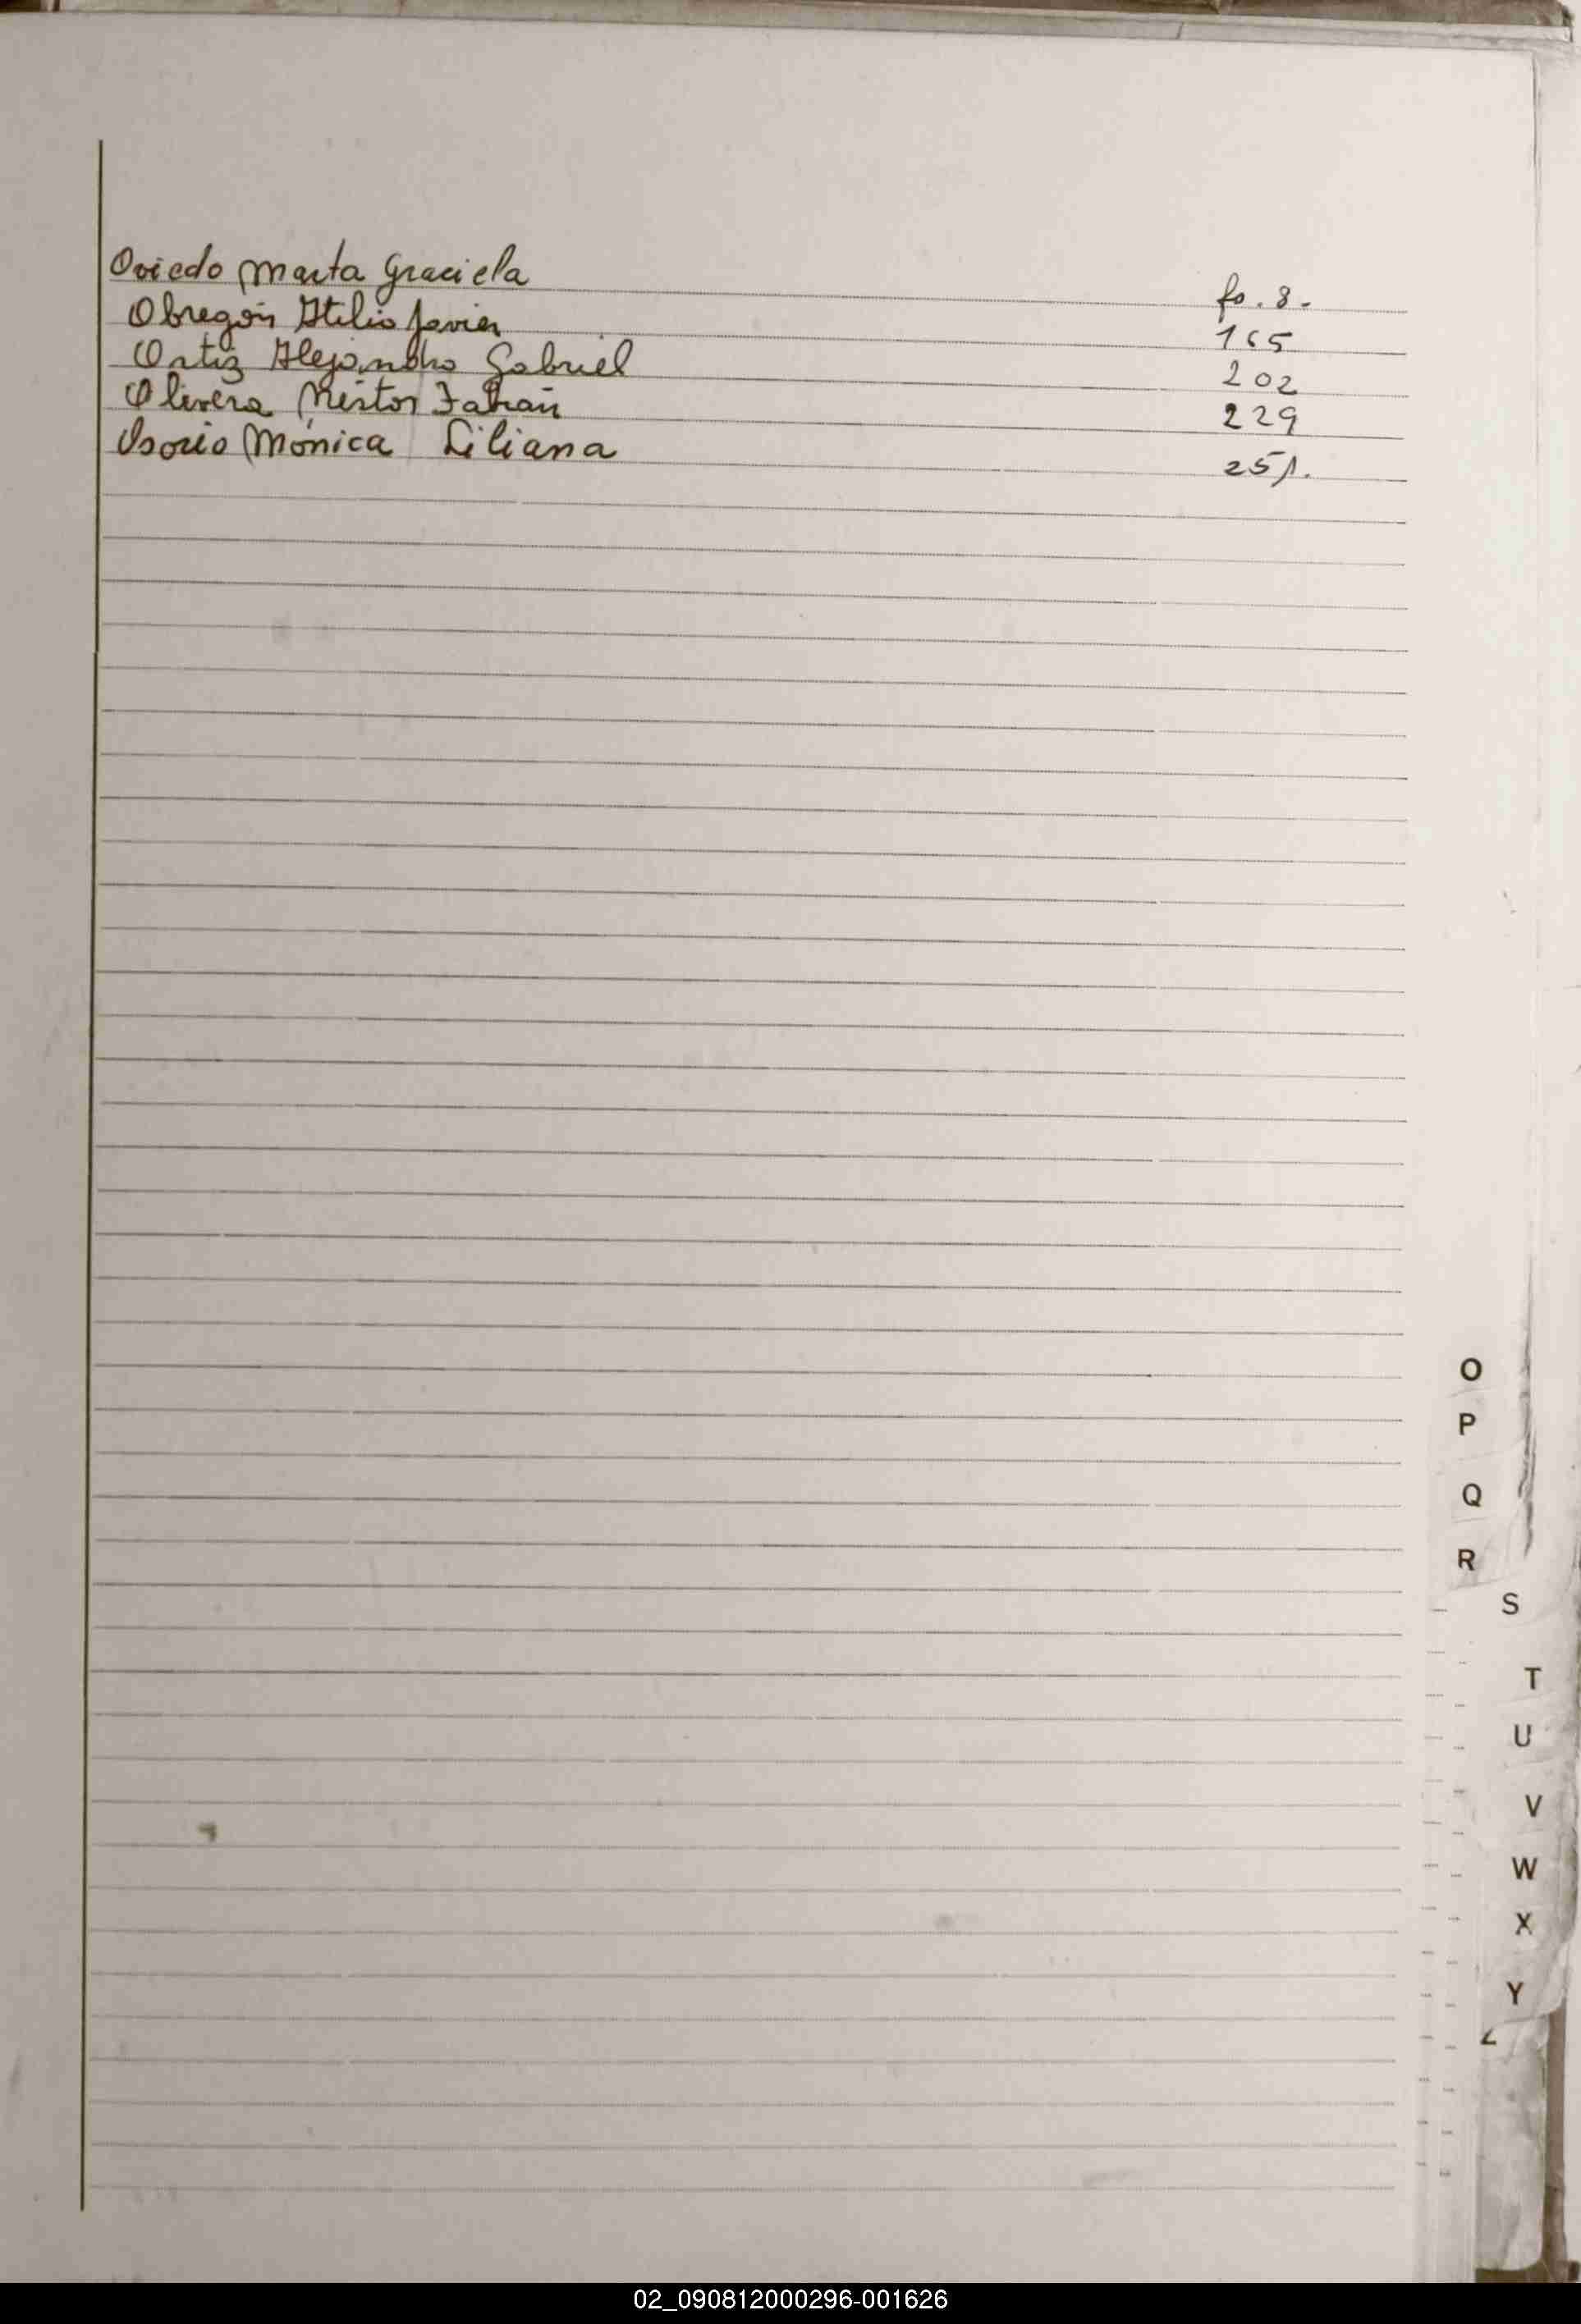 Oviedo Marta Graciela fo. 8.
Obregón Atilio Javier 165
Ortiz Alejandro Gabriel 202
Olivera Néstor Fabián 229
Osorio Mónica Liliana 251.
O
P
Q
R
S
T
U
V
W
X
Y
Z
02_090812000296-001626